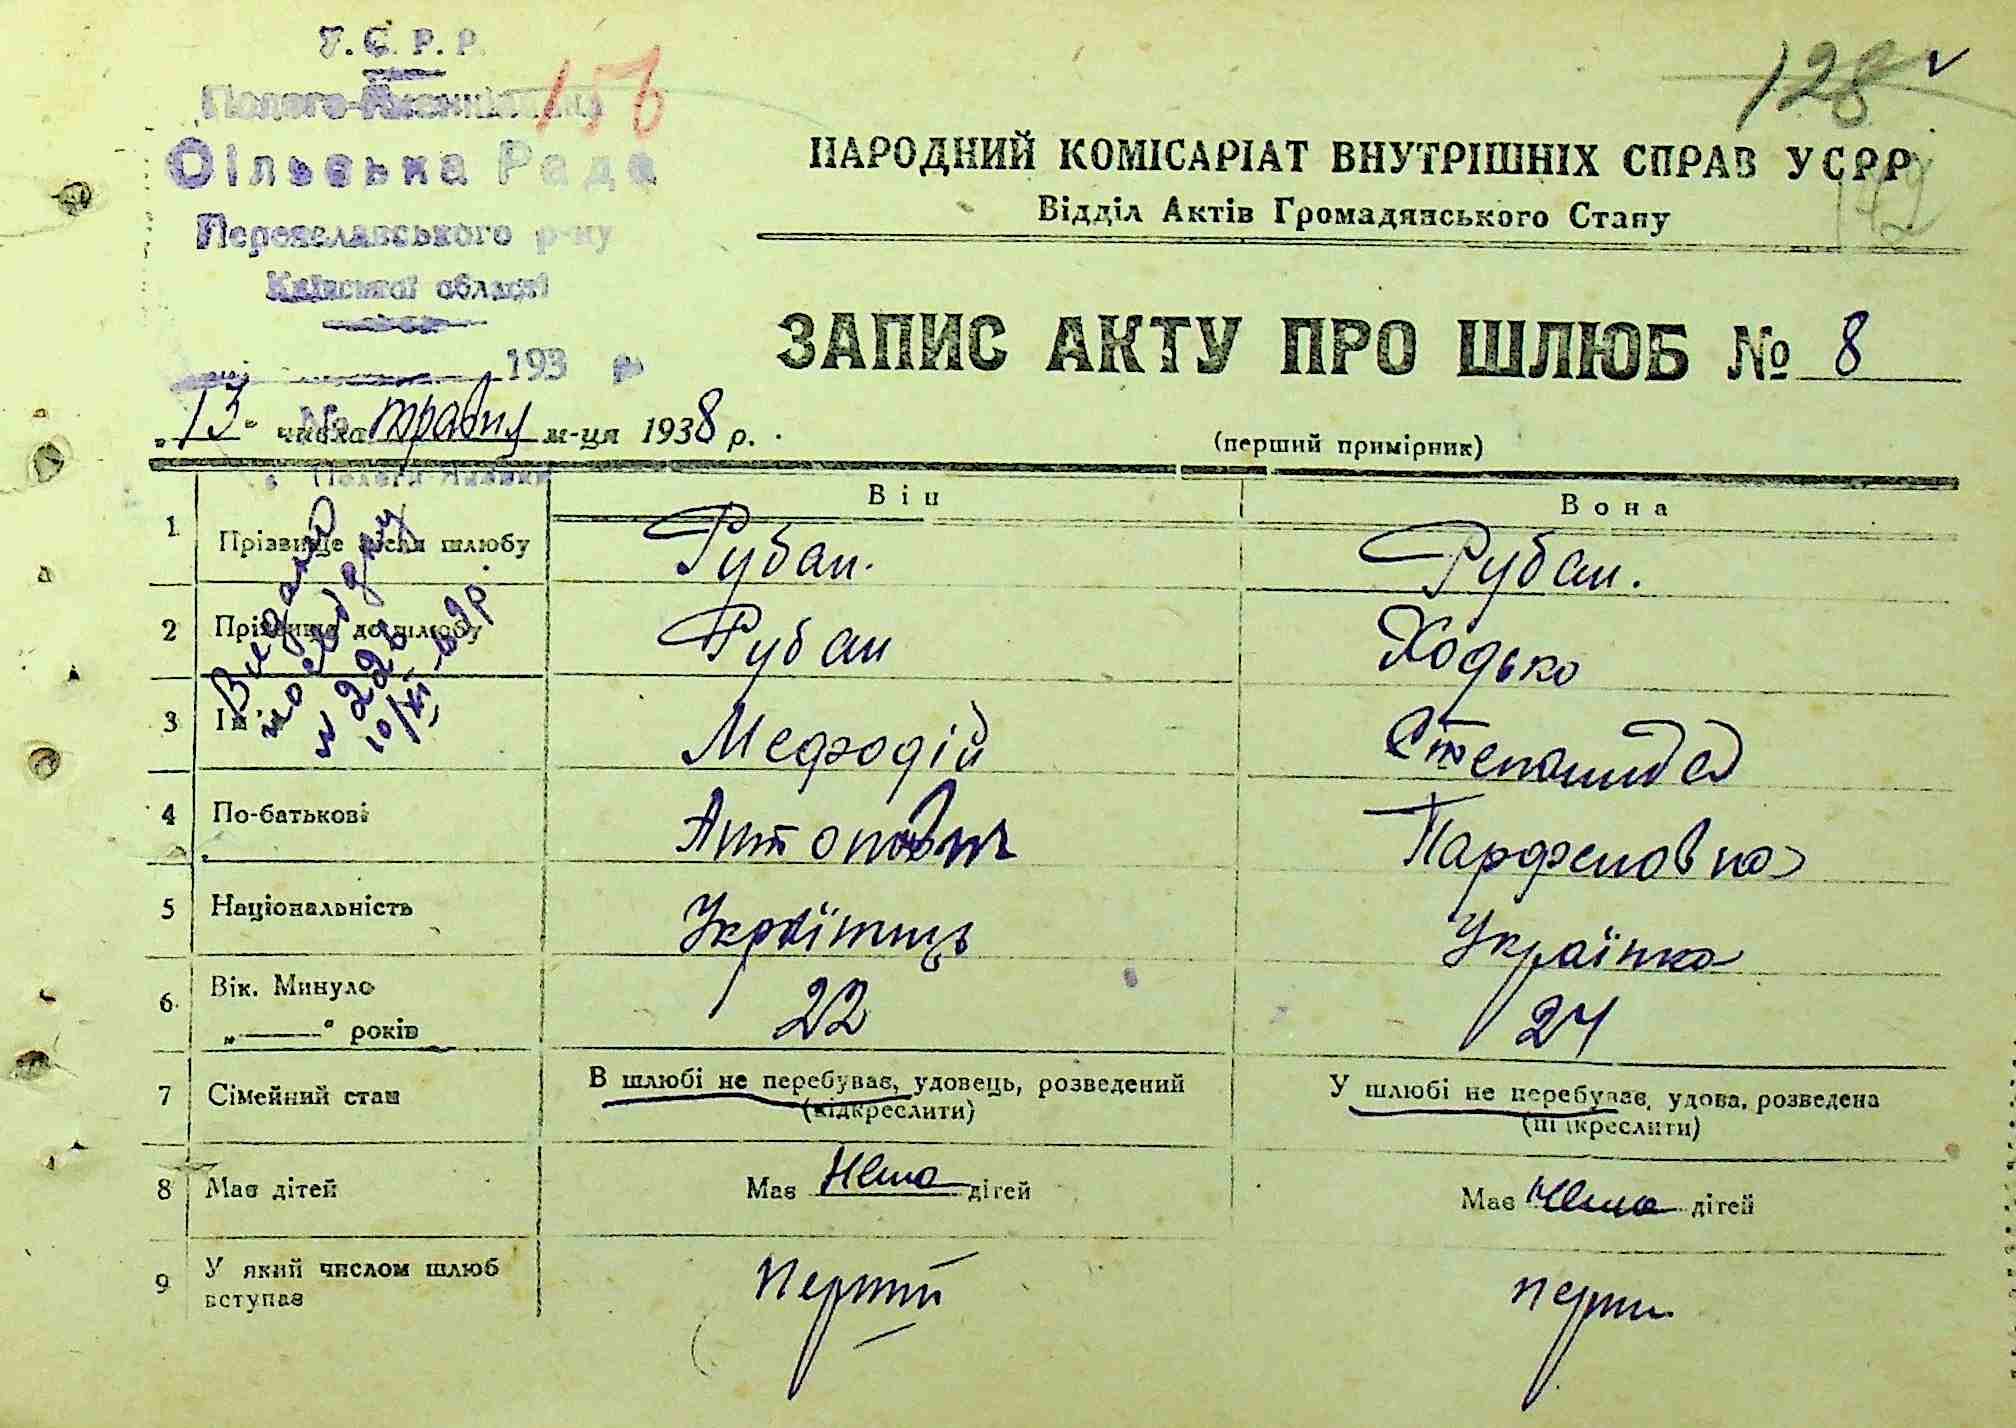 У.С.Р.Р.
Сільська Рада
Переяславського р-ну
Київської області
193
156
128
142
НАРОДНИЙ КОМІСАРІАТ ВНУТРІШНІХ СПРАВ УСРР
Відділ Актів Громадянського Стану
ЗАПИС АКТУ ПРО ШЛЮБ № 8
„13" числа травня м-ця 1938 р.
(перший примірник)
Він
Вона
1 Прізвище після шлюбу Рубан. Рубан.
2 Прізвище до шлюбу Рубан Ходько
3 Ім'я Мефодій Степанида
4 По-батькові Антонович Парфеновна
5 Національність Українець Українка
6 Вік. Минуло „——" років 22 24
7 Сімейний стан В шлюбі не перебуває, удовець, розведений (підкреслити) У шлюбі не перебуває, удова, розведена (підкреслити)
8 Має дітей Має Нема дітей Має Нема дітей
9 У який числом шлюб вступає перший перший